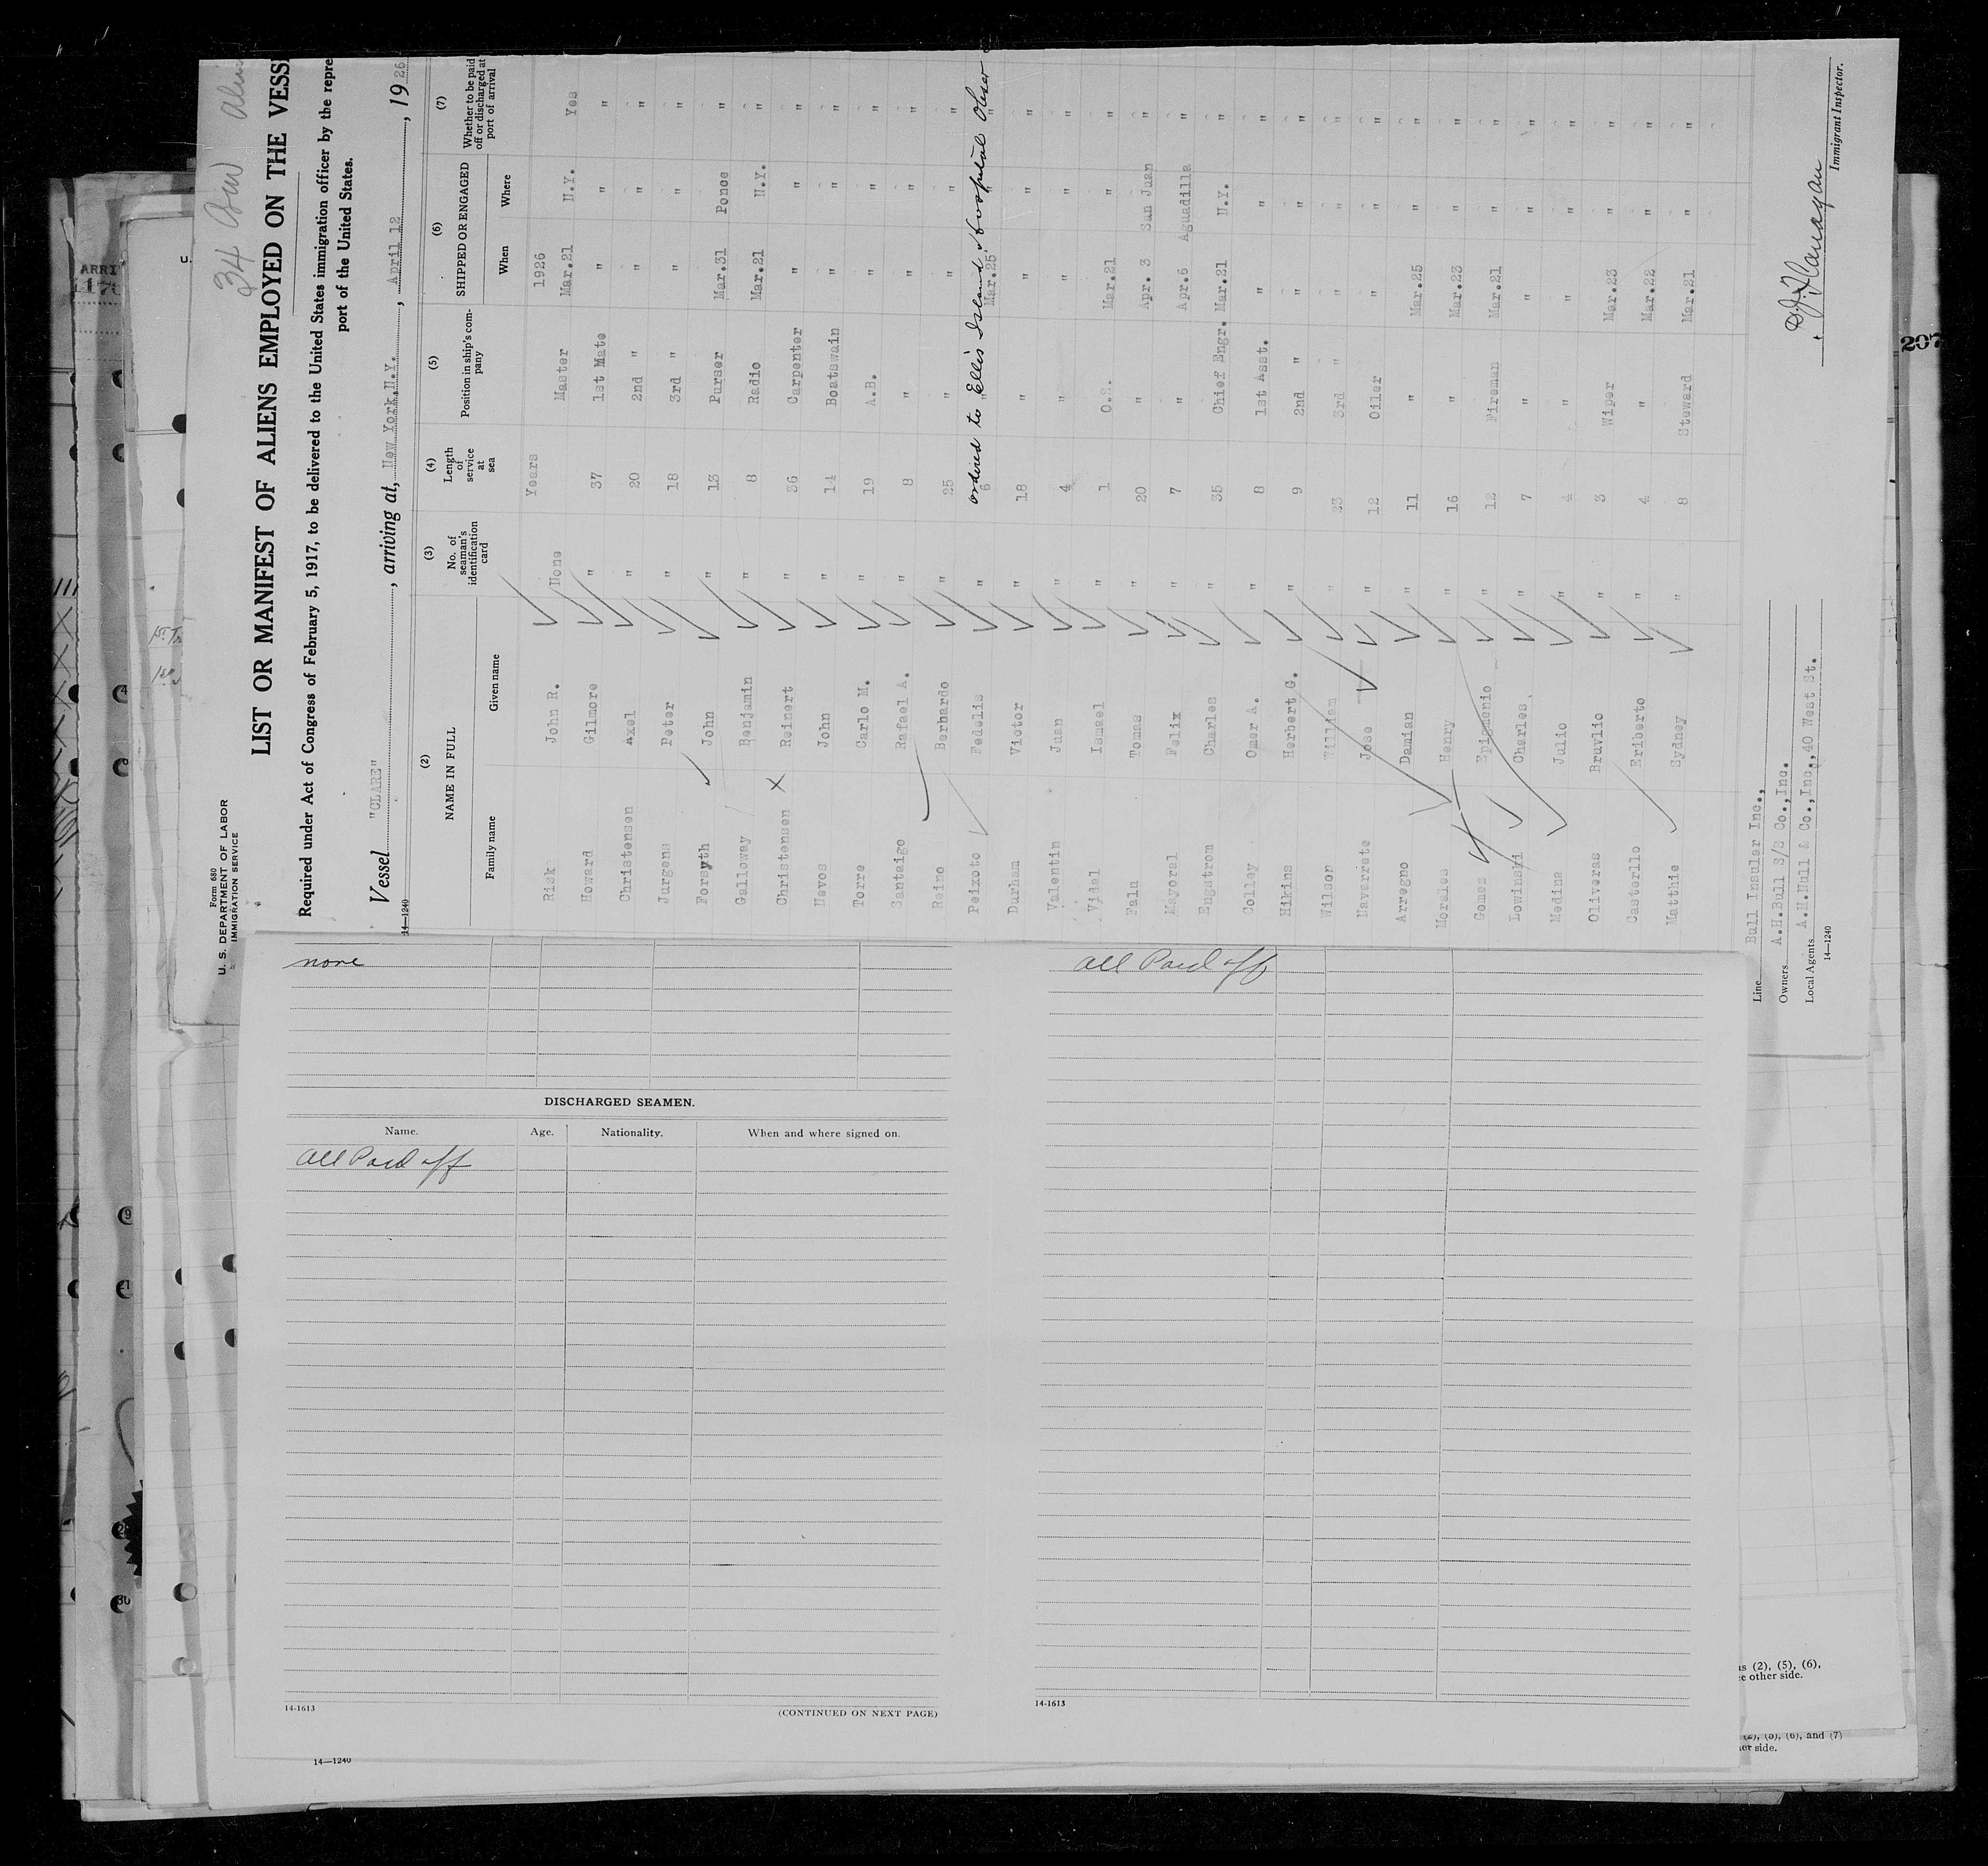 34 
Form 680
U. S. DEPARTMENT OF LABOR
IMMIGRATION SERVICE
LIST OR MANIFEST OF ALIENS EMPLOYED ON THE VESSE
Required under Act of Congress of February 5, 1917, to be delivered to the United States immigration officer by the repre
port of the United States.
Vessel "CLARE" , arriving at, New York.N.Y. , April 12 , 1926
14—1240
(2) NAME IN FULL (3) No. of seaman's identification card (4) Length of service at sea (5) Position in ship's company (6) SHIPPED OR ENGAGED (7) Whether to be paid off or discharged at port of arrival
Family name Given name When Where
Years 1926
Risk John R. None Master Mar.21 N.Y. Yes
Howard Gilmore " 37 1st Mate " " "
Christensen Axel " 20 2nd " " " "
Jurgens Peter " 18 3rd " " " "
Forsyth John " 13 Purser Mar.31 Ponce "
Galloway Benjamin " 8 Radio Mar.21 N.Y. "
Christensen Reinert " 36 Carpenter " " "
Nevos John " 14 Boatswain " " "
Torre Carlo M. " 19 A.B. " " "
Santaigo Rafael A. " 8 " " " "
Reino Berhardo " 25 " " " "
ordered to Ellis Island Hospital Obser
Peixoto Fedelis " 6 " Mar.25 "
Durham Victor " 18 " " " "
Valentin Juan " 4 " " " "
Vidal Ismael " 1 O.S. Mar.21 " "
Falu Tomas " 20 " Apr. 3 San Juan "
Mayoral Felix " 7 " Apr.6 Aguadilla "
Engstrom Charles " 35 Chief Engr. Mar.21 N.Y. "
Colley Omer A. " 8 1st Asst. " " "
Hikins Herbert G. " 9 2nd " " " "
Wilson William " 23 3rd " " " "
Navarrete Jose " 12 Oiler " " "
Arregno Damian " 11 " Mar.25 " "
Morales Henry " 16 " Mar.23 " "
Gomez Epigmenio " 12 Fireman Mar.21 " "
Lowinski Charles " 7 " " " "
Medina Julio " 4 " " " "
Oliveras Bruvlio " 3 Wiper Mar.23 " "
Casterllo Eriberto " 4 " Mar.22 " "
Matthie Sydney " 8 Steward Mar.21 " "
Line Bull Insular Inc.,
Owners A.H.Bull S/S Co.,Inc.
Local Agents A.H.Bull & Co.,Inc.,40 West St.
14—1240
D.J. Flanagan
Immigrant Inspector.
207
none
DISCHARGED SEAMEN.
Name. Age. Nationality. When and where signed on.
All Paid off
14-1613
(CONTINUED ON NEXT PAGE)
All Paid off
14-1613
14—1240
ns (2), (5), (6),
ee other side.
(2), (5), (6), and (7)
her side.